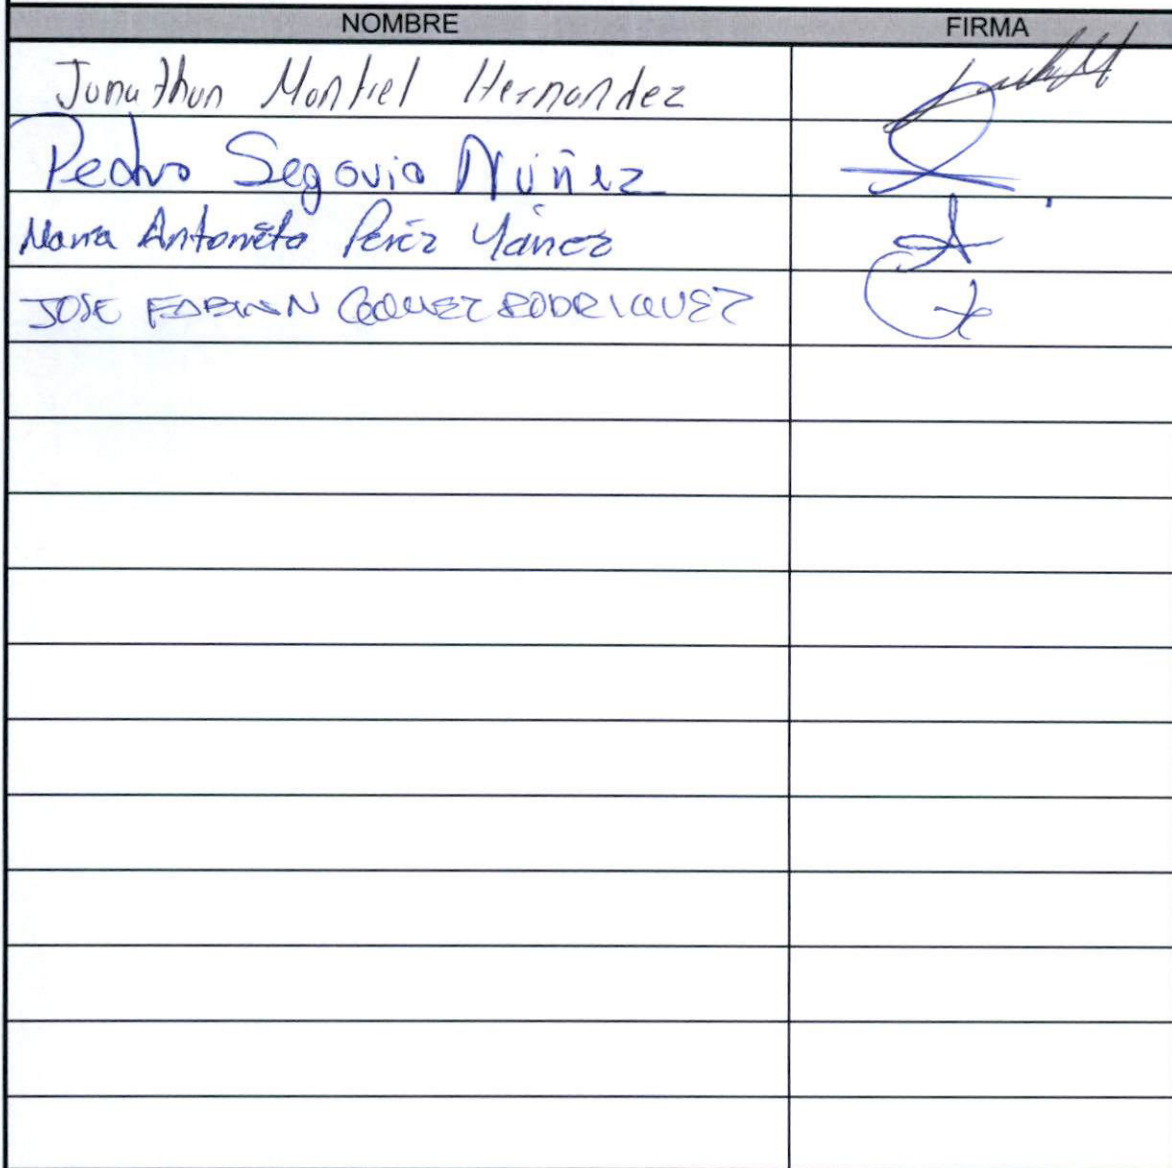 NOMBRE FIRMA
Jonathan Montiel Hernandez
Pedro Segovia Núñez
Maria Antonieta Peréz Yánez
JOSE FABIAN RODRIGUEZ